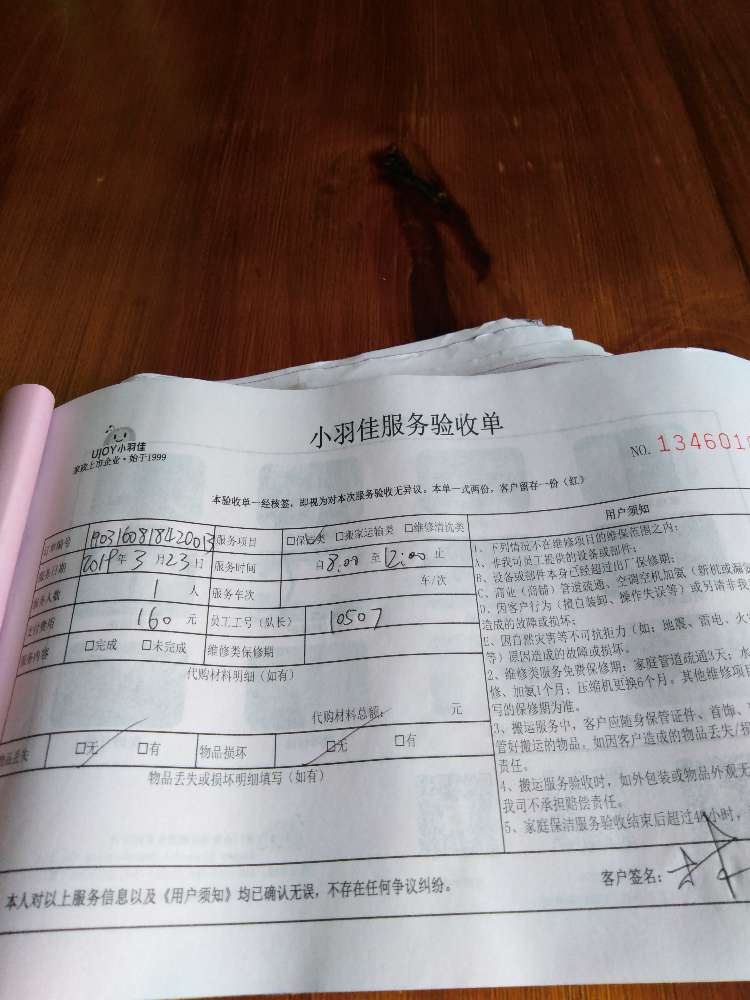 小羽佳服务验收单
UJOY小羽佳
家政上市企业·始于1999
NO. 134601
本验收单一经核签，即视为对本次服务验收无异议。本单一式两份，客户留存一份（红）
订单编号 190316081842001 服务项目 □保洁类 □搬家运输类 □维修清洗类
服务日期 2019年3月23日 服务时间 自8:00至12:00止
服务人数 1人 服务车次 车/次
支付费用 160元 员工工号（队长） 10507
服务内容 □完成 □未完成 维修类保修期
代购材料明细（如有）
代购材料总额： 元
物品丢失 □无 □有 物品损坏 □无 □有
物品丢失或损坏明细填写（如有）
用户须知
1、下列情况不在维修项目的维保范围之内：
A、非我司员工提供的设备或部件；
B、设备或部件本身已经超过出厂保修期；
C、高危（高铺）管道疏通、空调空机加氨（新机或漏
D、因客户行为（擅自装卸、操作失误等）或另请非我
造成的故障或损坏；
E、因自然灾害等不可抗拒力（如：地震、雷电、火
等）原因造成的故障或损坏。
2、维修类服务免费保修期：家庭管道疏通3天；水
修、加氨1个月；压缩机更换6个月。其他维修项目
写的保修期为准。
3、搬运服务中，客户应随身保管证件、首饰、
管好搬运的物品。如因客户造成的物品丢失/损
责任。
4、搬运服务验收时，如外包装或物品外观无
我司不承担赔偿责任。
5、家庭保洁服务验收结束后超过48小时，
本人对以上服务信息以及《用户须知》均已确认无误，不存在任何争议纠纷。
客户签名：